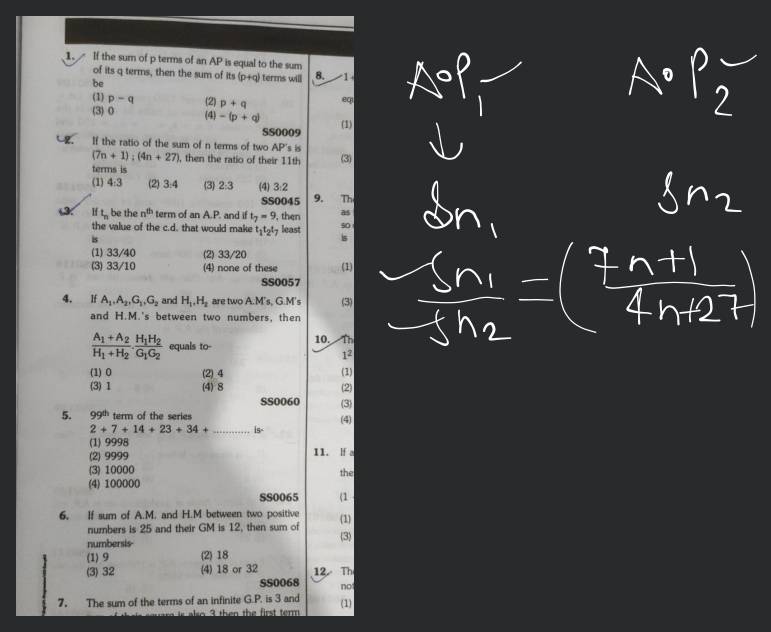 1. If the sum of p terms of an AP is equal to the sum
of its q terms, then the sum of its (p+q) terms will
be
(1) p – q (2) p + q
(3) 0 (4) – (p + q)
SS0009
2. If the ratio of the sum of n terms of two AP's is
(7n + 1) : (4n + 27), then the ratio of their 11th
terms is
(1) 4:3 (2) 3:4 (3) 2:3 (4) 3:2
SS0045
3. If tₙ be the nᵗʰ term of an A.P. and if t₇ = 9, then
the value of the c.d. that would make t₁t₂t₇ least
is
(1) 33/40 (2) 33/20
(3) 33/10 (4) none of these
SS0057
4. If A₁,A₂,G₁,G₂ and H₁,H₂ are two A.M's, G.M's
and H.M.'s between two numbers, then
A₁ + A₂ / H₁ + H₂ · H₁H₂ / G₁G₂ equals to-
(1) 0 (2) 4
(3) 1 (4) 8
SS0060
5. 99ᵗʰ term of the series
2 + 7 + 14 + 23 + 34 + ............ is-
(1) 9998
(2) 9999
(3) 10000
(4) 100000
SS0065
6. If sum of A.M. and H.M between two positive
numbers is 25 and their GM is 12, then sum of
numbersis-
(1) 9 (2) 18
(3) 32 (4) 18 or 32
SS0068
7. The sum of the terms of an infinite G.P. is 3 and
square is also 3 then the first term
8. 1
(1)
(3)
9. Th
as
so
is
(1)
(3)
10. Th
1²
(1)
(2)
(3)
(4)
11. If a
the
(1
(1)
(3)
12. Th
not
(1)
A.P₁ A.P₂
↓
Sn₁ Sn₂
Sn₁ / Sn₂ = (7n+1 / 4n+27)